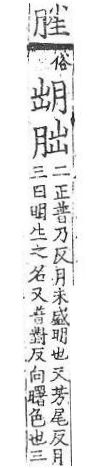 俗
朏
二正普乃反月未盛明也又芳尾反月
三日明生之名又昔對反向曙色也三